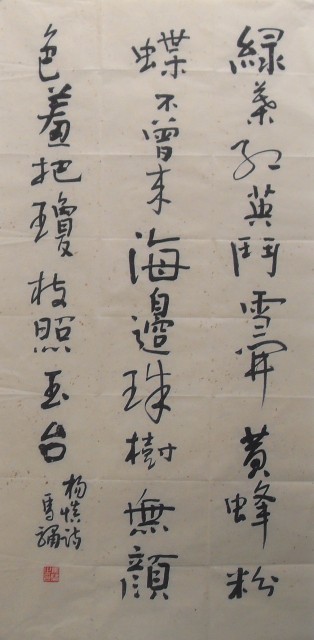 綠葉紅英鬥雪開黃蜂粉
蝶不曾來海邊珠樹無顏
色羞把瓊枝照玉台
楊慎詩
馬驌